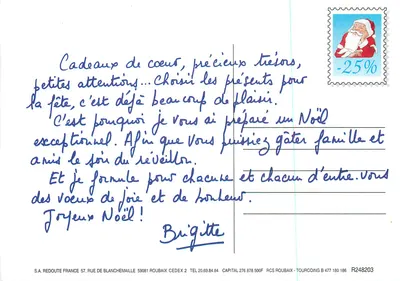 -25%
Cadeaux de cœur, précieux trésors,
petites attentions... Choisir les présents pour
la fête, c'est déjà beaucoup de plaisir.
C'est pourquoi je vous ai préparé un Noël
exceptionnel. Afin que vous puissiez gâter famille et
amis le soir du réveillon.
Et je formule pour chacune et chacun d'entre-vous
des vœux de joie et de bonheur.
Joyeux Noël!
Brigitte
S.A. REDOUTE FRANCE 57, RUE DE BLANCHEMAILLE 59081 ROUBAIX CEDEX 2 TEL 20.69.84.84 CAPITAL 276.878.500F RCS ROUBAIX - TOURCOING B 477 180 186 R248203